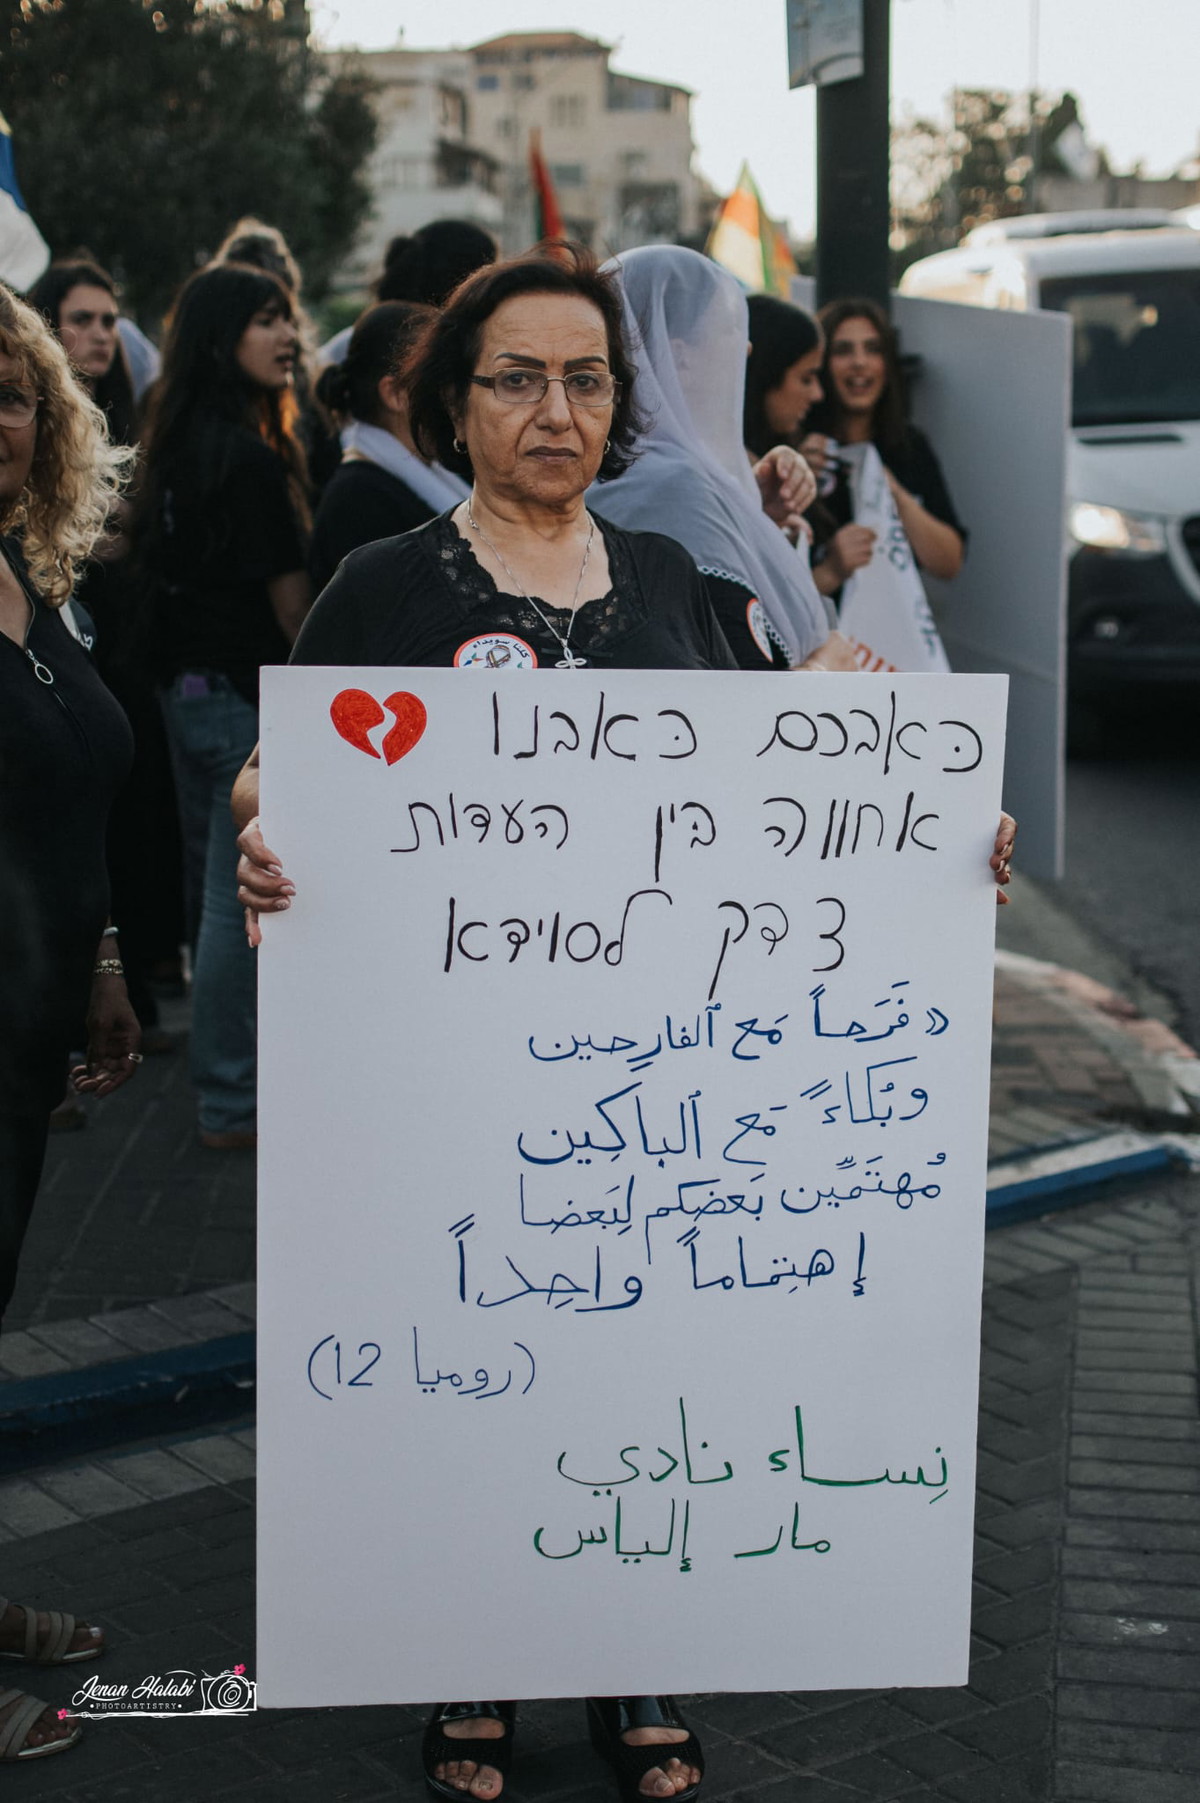 כּאבכם כּאבנו
אחווה בּין העדות
צדק לסוידא
«فَرَحاً مَع ٱلفارِحين
وبُكاءً مَع ٱلباكِين
مُهتَمِّين بَعضكم لِبَعضا
إهتِماماً واحِداً
(روميا 12)
نِساء نادي
مار إلياس
كلنا سويداء
Jenan Halabi
PHOTOARTISTRY